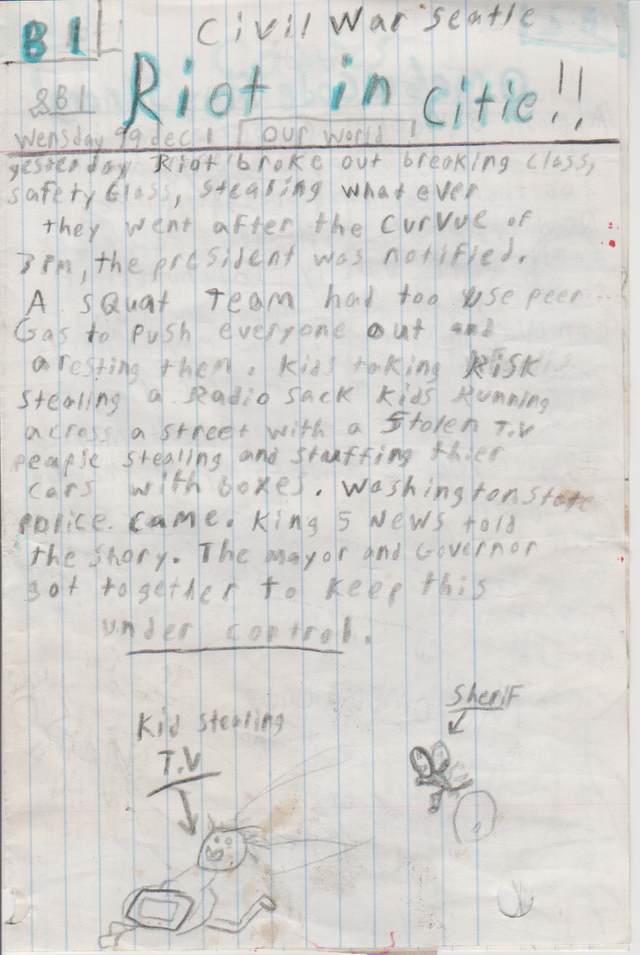 B1
Civil War Seatle
Riot in Citie!!
&B1
Wensday 99 dec 1 Our World
yesterday Riot broke out breaking Glass,
safety Glass, stealing what ever
they went after the CurVue of
8pm, the president was notified.
A SQuat Team had too use peer
Gas to push everyone out and
aresting them. Kids taking RiSK
Stealing a Radio Sack Kids Running
across a street with a Stolen T.V
peaple Stealing and Stuffing thier
cars with boxes. Washington State
police came. King 5 News told
the Story. The mayor and Governor
got together To Keep this
under control.
Sherif
Kid Stealing
T.V